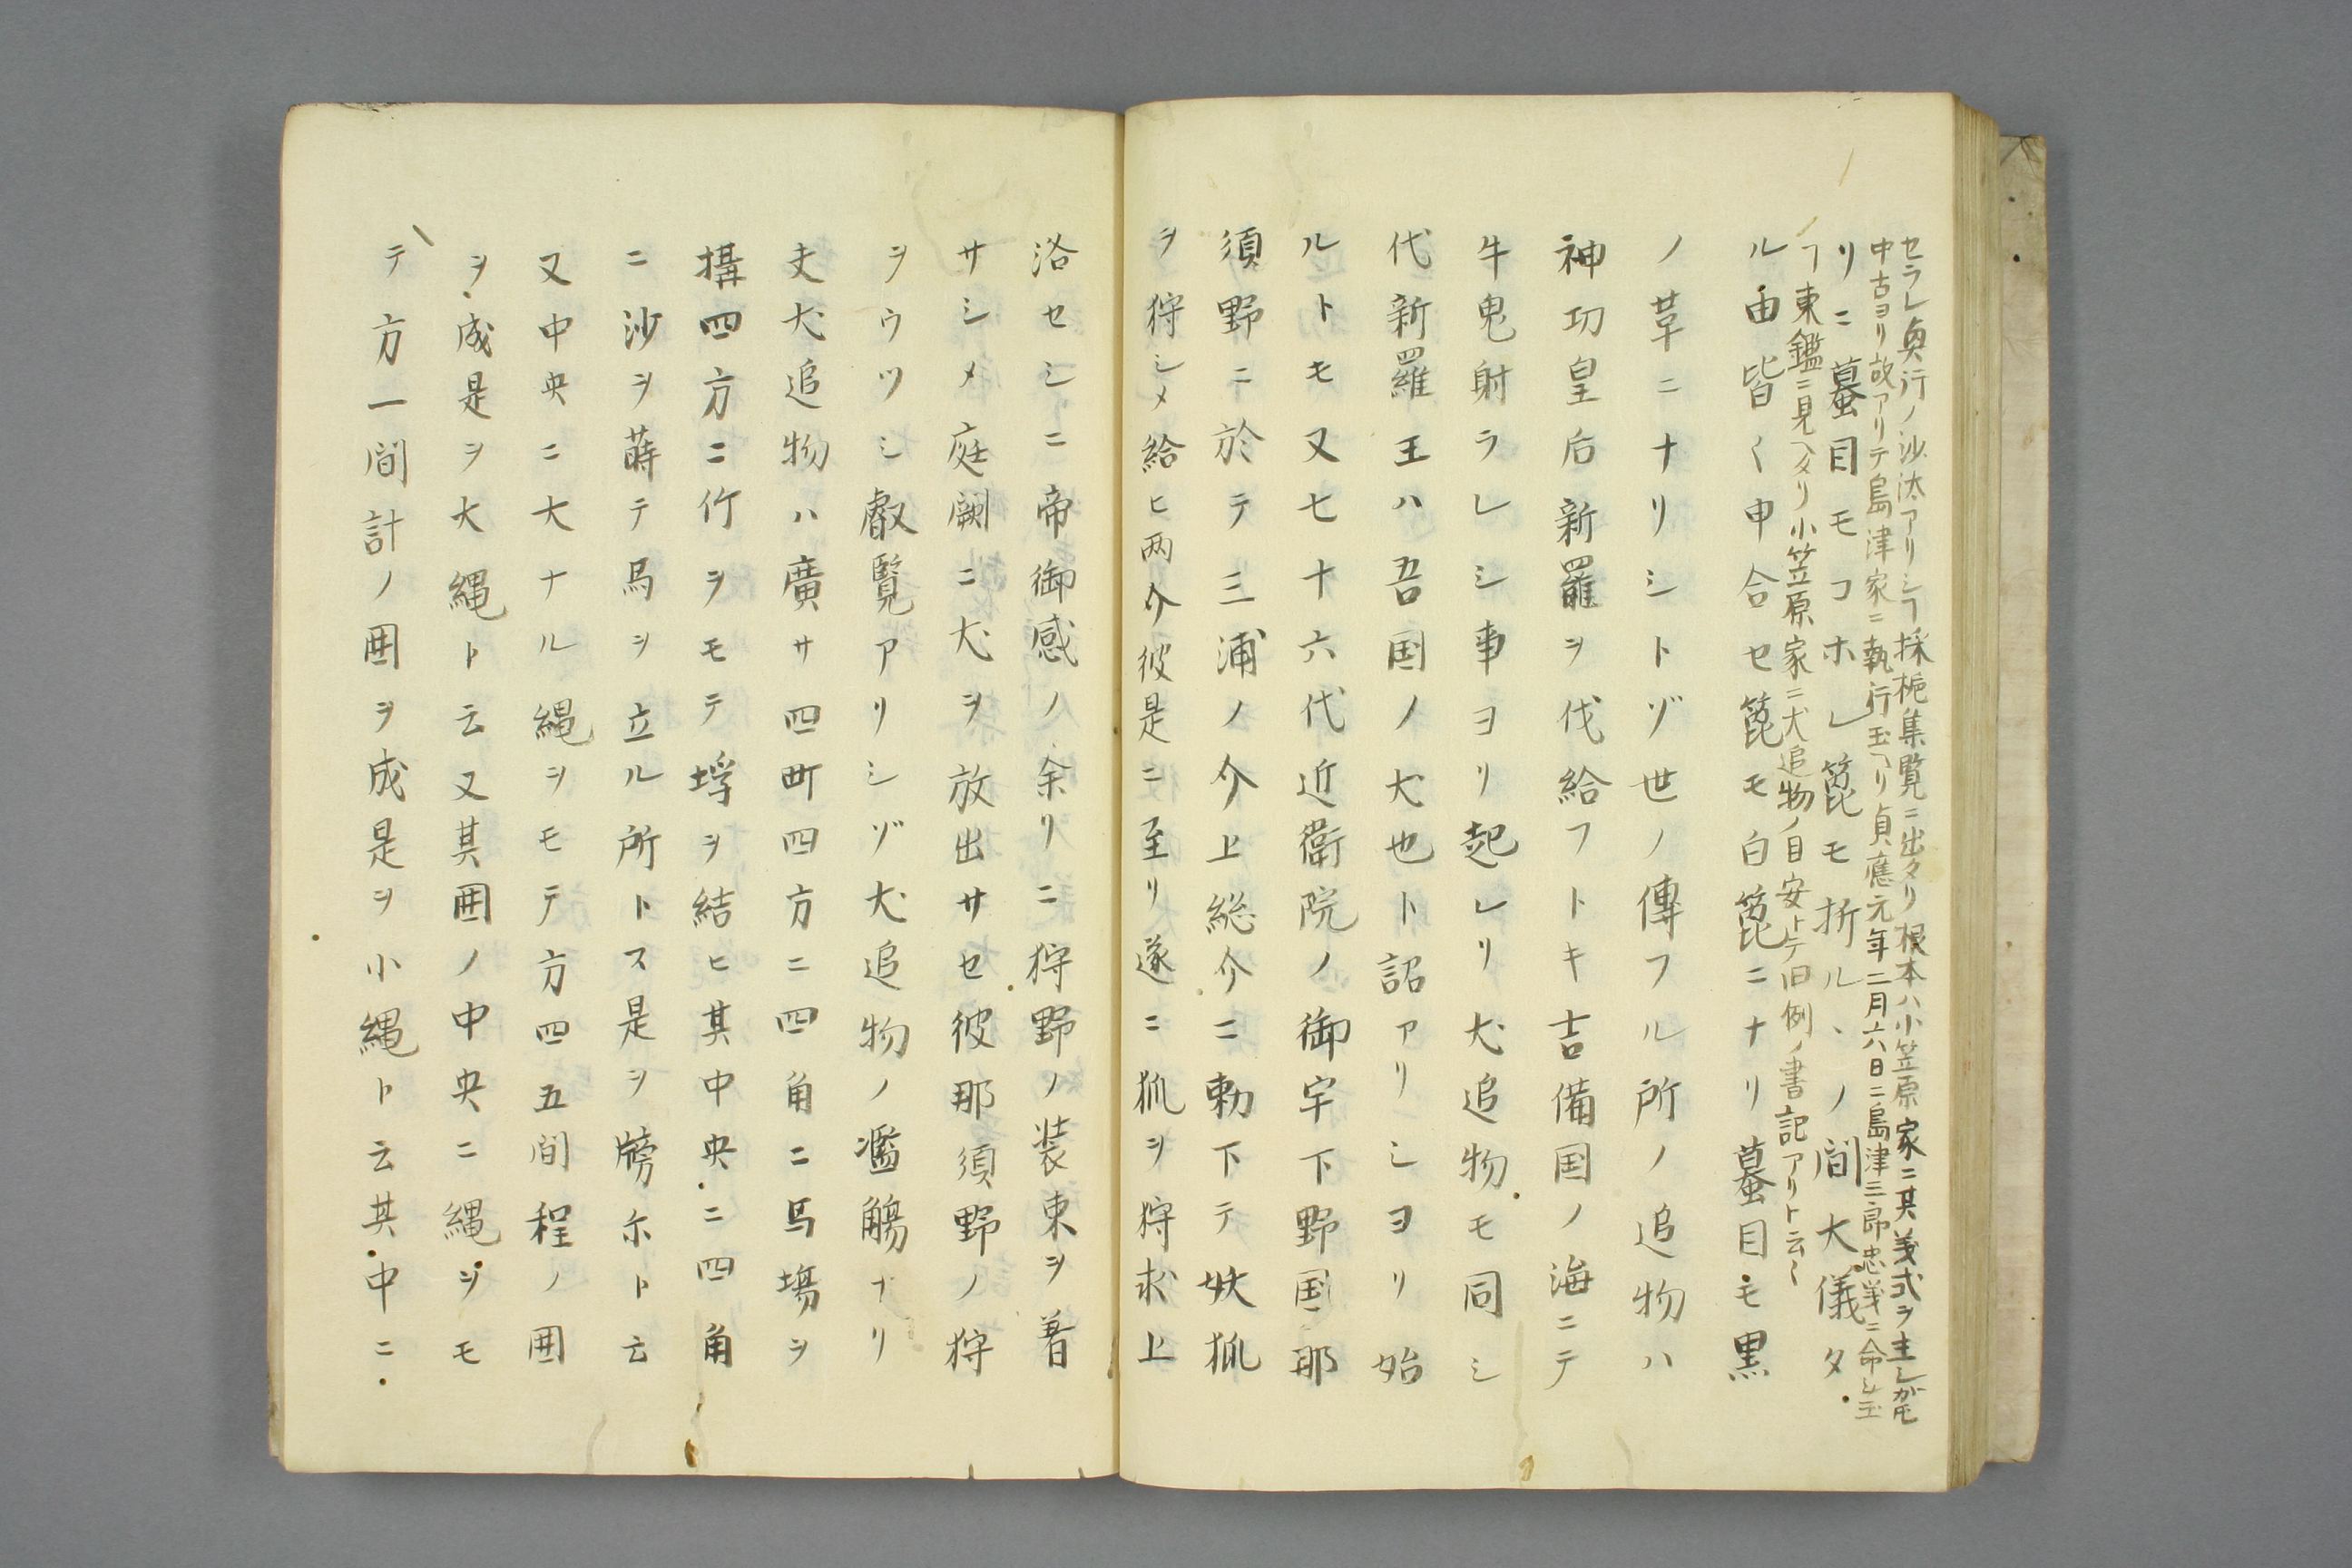 セラレ真行ノ沙汰アリシヿ採梔集覧ニ出タリ根本ハ小笠原家ニ其義式ヲ主シガ㐂
中古ヨリ故アリテ島津家ニ執行玉ヘリ貞應元年二月六日ニ島津三郎忠義ニ命シ玉
リニ蟇目モコホレ篦モ折ル丶ノ間大儀タ
フ東鑑ニ見ヘタリ小笠原家ニ犬追物ノ目安トテ旧例ノ書記アリト云〱
ル由皆〱申合セ篦モ白篦ニナリ蟇目モ黒
ノ草ニナリシトゾ世ノ傳フル所ノ追物ハ
神功皇后新羅ヲ伐給フトキ吉備国ノ海ニテ
牛鬼射ラレシ事ヨリ起レリ犬追物モ同シ
代新羅王ハ吾国ノ犬也ト詔アリシヨリ始
ルトモ又七十六代近衛院ノ御宇下野国那
須野ニ於テ三浦ノ介上総介ニ勅下テ妖狐
ヲ狩シメ給ヒ両介彼是ニ至リ遂ニ狐ヲ狩求上
洛セシニ帝御感ノ余リニ狩野ノ装束ヲ着
サシメ庭闕ニ犬ヲ放出サセ彼那須野ノ狩
ヲウツシ叡覧アリシゾ犬追物ノ濫觴ナリ
夫犬追物ハ廣サ四町四方ニ四角ニ馬場ヲ
搆四方ニ竹ヲモテ埒ヲ結ヒ其中央ニ四角
ニ沙ヲ蒔テ馬ヲ立ル所トス是ヲ牓尓ト云
又中央ニ大ナル縄ヲモテ方四五間程ノ囲
ヲ成是ヲ大縄ト云又其囲ノ中央ニ縄ヲモ
テ方一間計ノ囲ヲ成是ヲ小縄ト云其中ニ